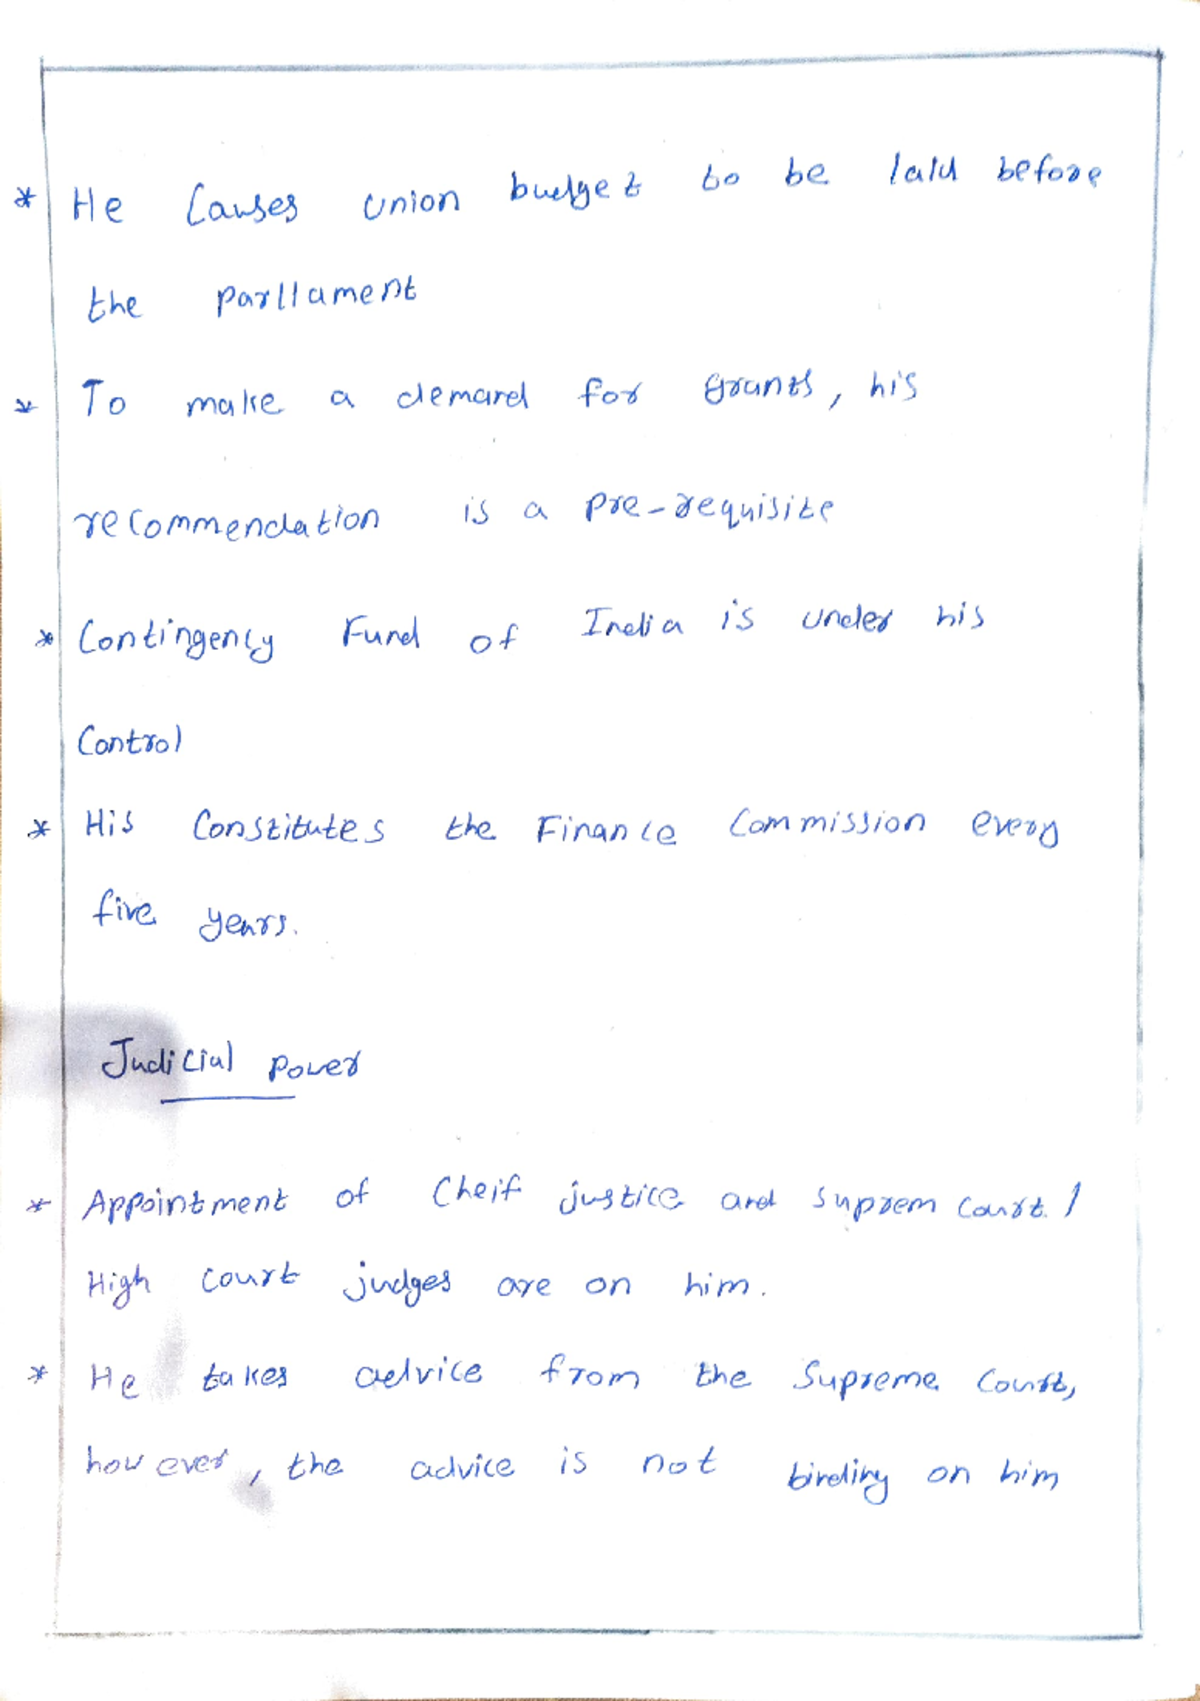 * He Causes union budget to be laid before
the parliament
* To make a demand for grants, his
recommendation is a pre-requisite
* Contingency Fund of India is under his
Control
* His Constitutes the Finance Commission every
five years.
Judicial Power
* Appointment of Cheif justice and Suprem Court /
High court judges are on him.
* He takes advice from the Supreme Court,
however, the advice is not binding on him